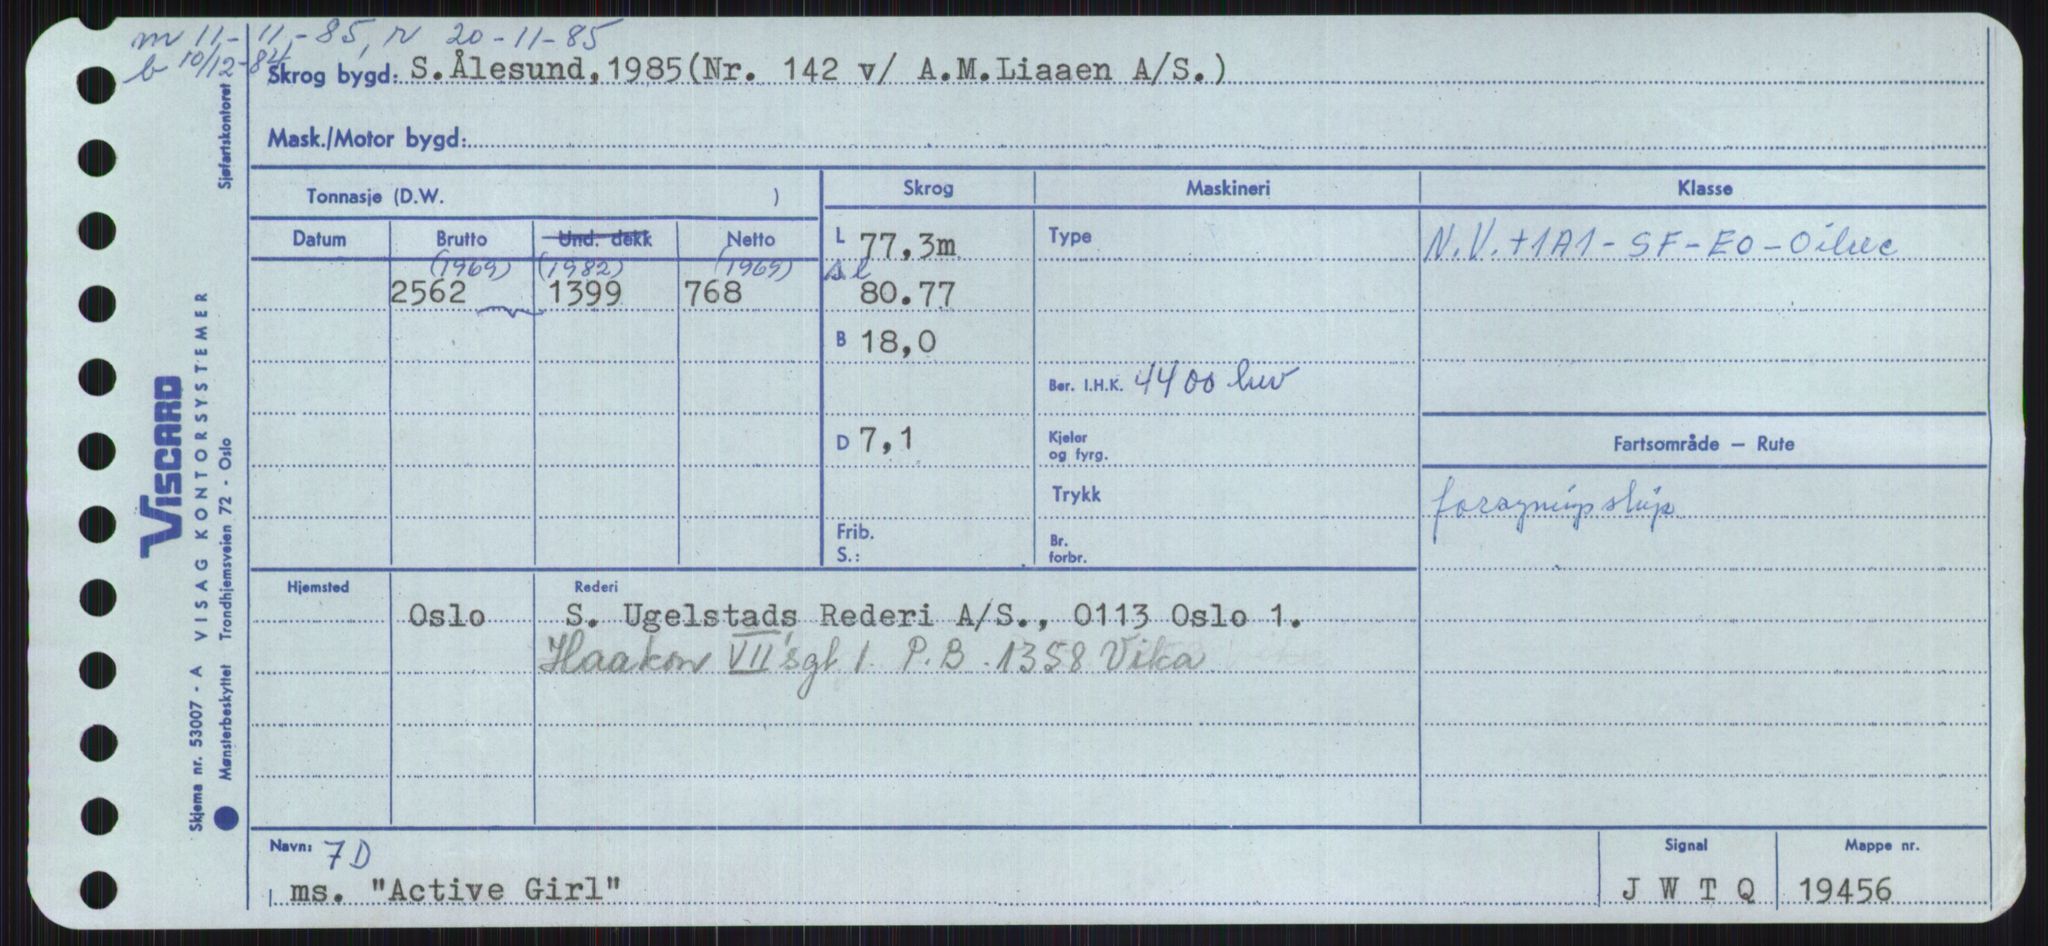 m 11-11-85, r 20-11-85
b 10/12-84
Skrog bygd: S.Ålesund, 1985(Nr. 142 v/ A.M.Liaaen A/S.)
Mask./Motor bygd:
Tonnasje (D.W. )
Skrog
Maskineri
Klasse
Datum
Brutto
Und. dekk
Netto
L 77,3m
Type
N.V. +1A1-SF-EO-Oilrec
(1969) (1982) (1969)
2562 1399 768
al 80.77
B 18,0
Ber. I.H.K. 4400 hw
D 7,1
Kjeler
og fyrg.
Fartsområde — Rute
Trykk
forsyningsskip
Frib.
S.:
Br.
forbr.
Hjemsted
Rederi
Oslo S. Ugelstads Rederi A/S., 0113 Oslo 1.
Haakon VII'sgt 1 P.B. 1358 Vika
Navn: 7D
ms. "Active Girl"
Signal
J W T Q
Mappe nr.
19456
Skjema nr. 53007 - A VISAG KONTORSYSTEMER
VISCARD
Mønsterbeskyttet Trondhjemsveien 72 - Oslo
Sjøfartskontoret